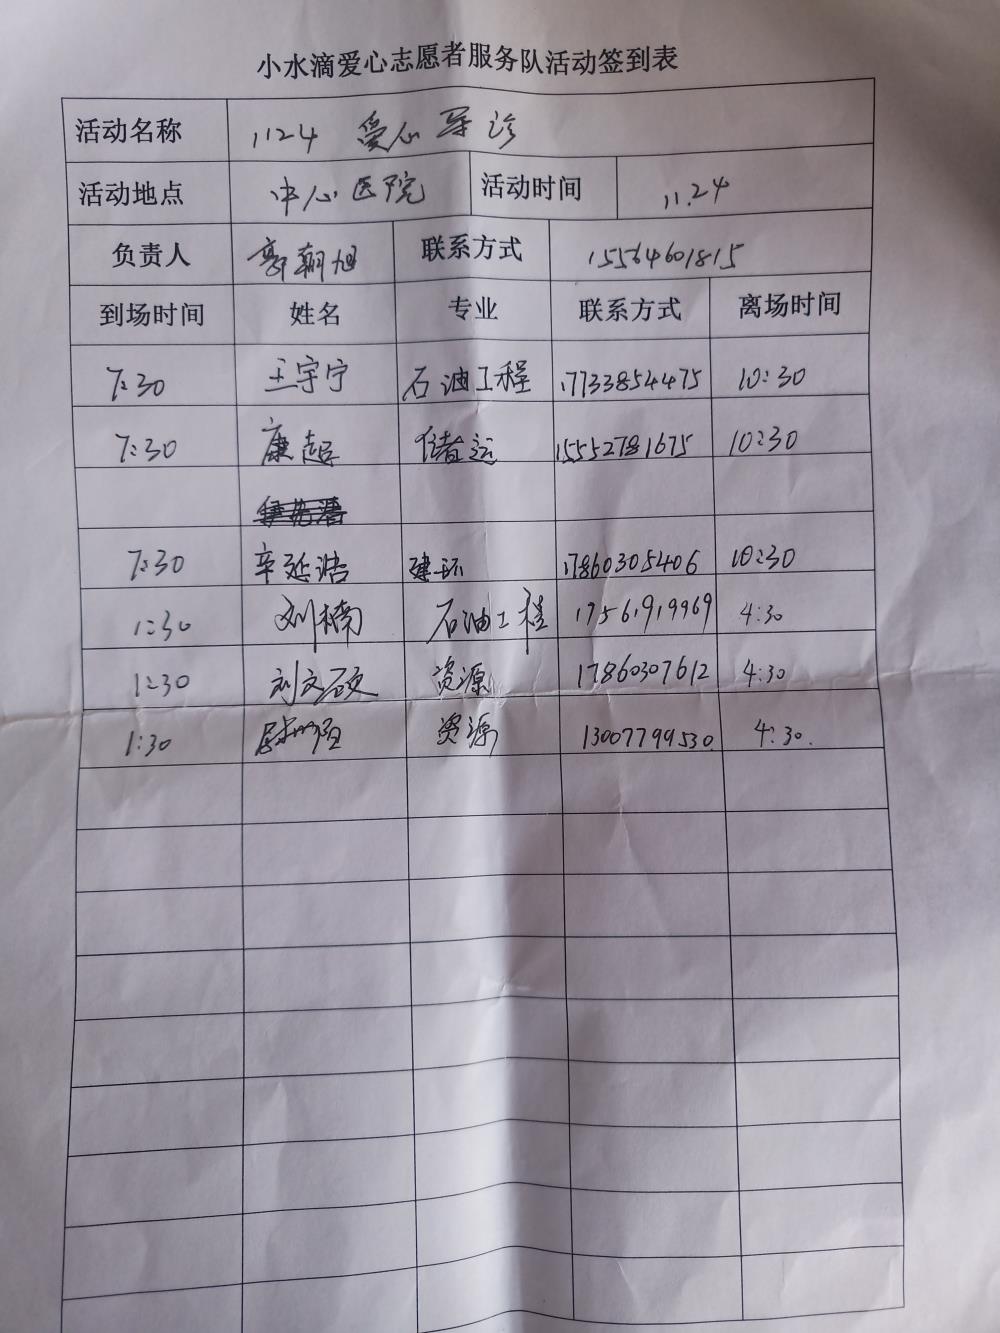 小水滴爱心志愿者服务队活动签到表
活动名称 1124 爱心导诊
活动地点 中心医院 活动时间 11.24
负责人 郭朝旭 联系方式 15564601815
到场时间 姓名 专业 联系方式 离场时间
7:30 王宇宁 石油工程 17733854475 10:30
7:30 康超 储运 15552781675 10:30
7:30 辛延浩 建环 17860305406 10:30
1:30 刘楠 石油工程 17561919969 4:30
1:30 刘文硕 资源 17860307612 4:30
1:30 资源 13007799530. 4:30.